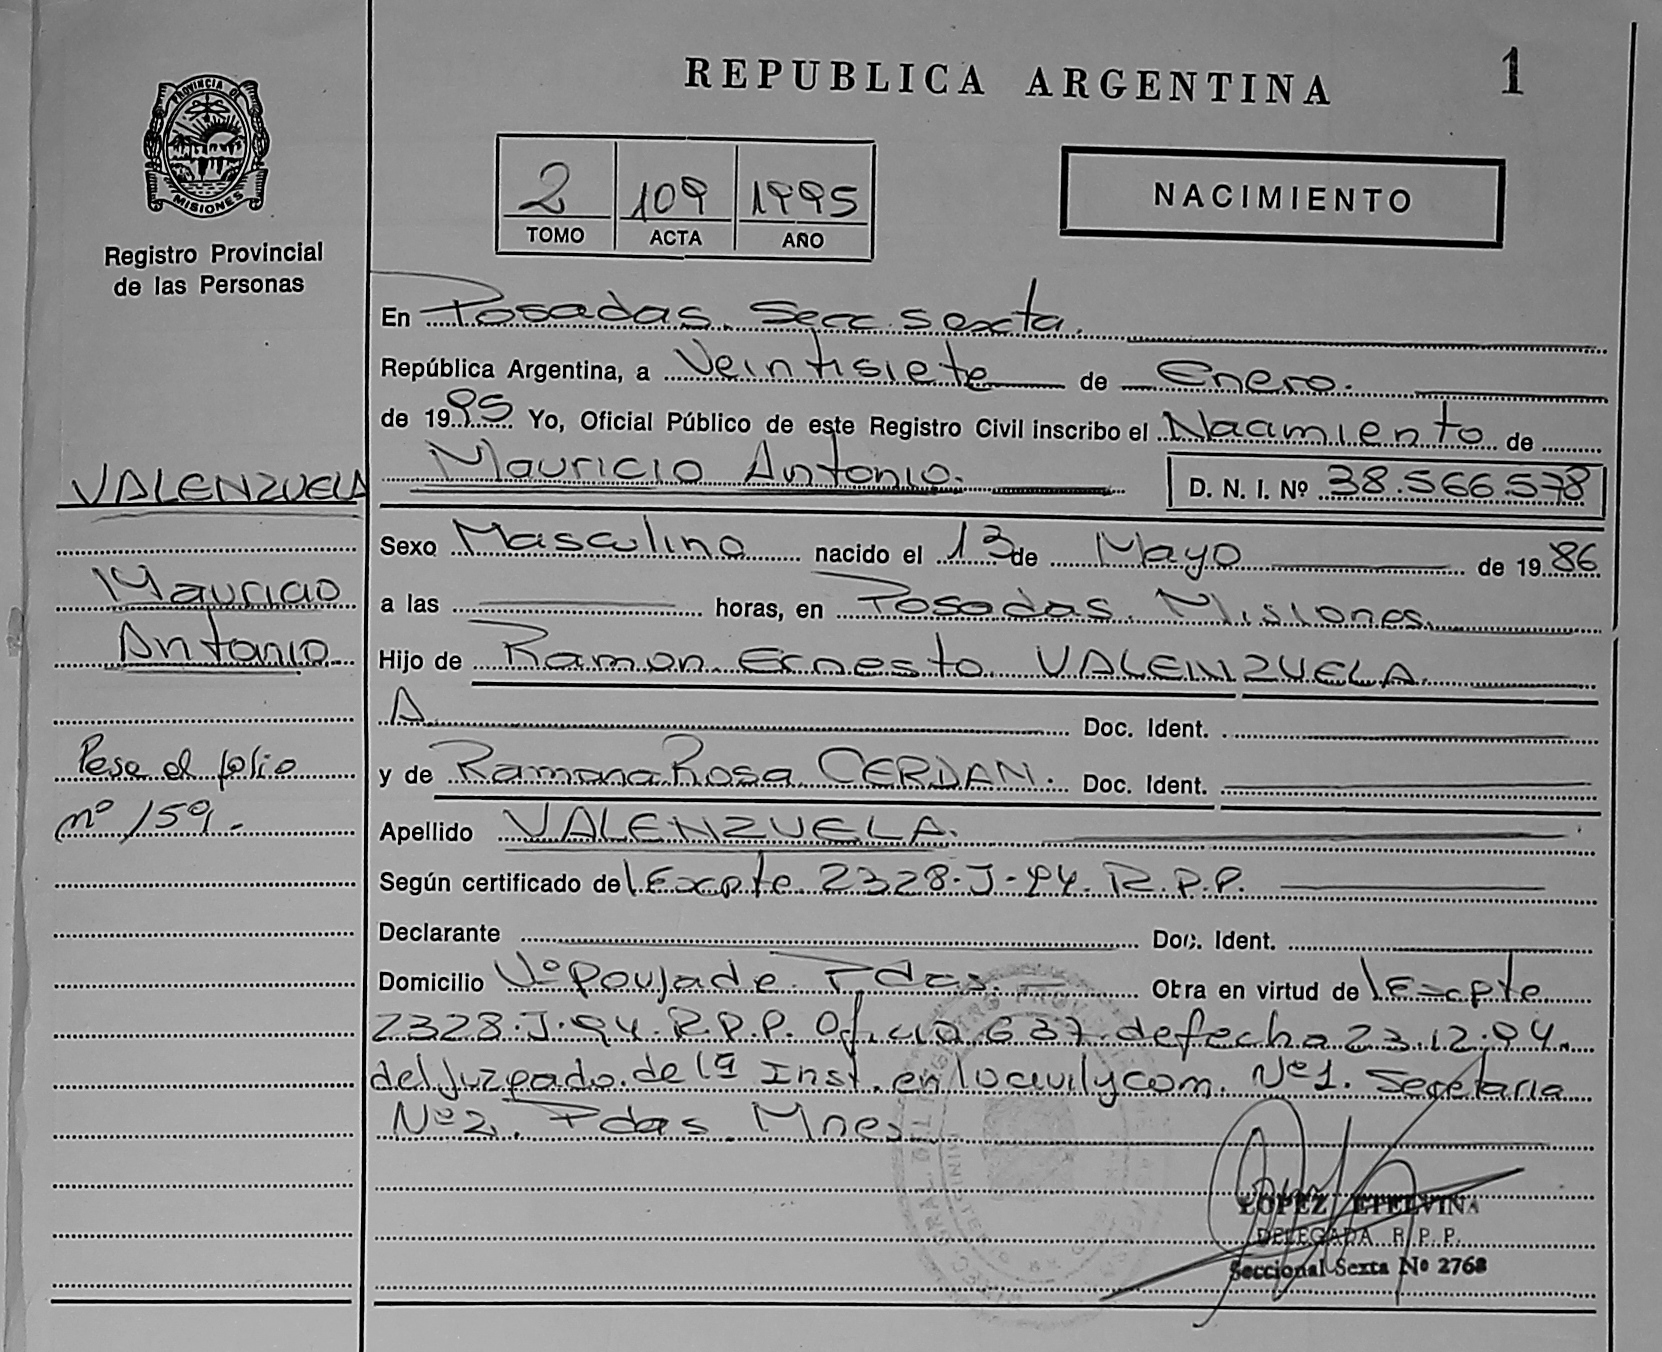 REPUBLICA ARGENTINA
1
PROVINCIA DE
MISIONES
Registro Provincial
de las Personas
2 109 1995
TOMO ACTA AÑO
NACIMIENTO
En Posadas. Secc. sexta.
República Argentina, a Veintisiete de Enero.
de 1995 Yo, Oficial Público de este Registro Civil inscribo el Nacimiento de
Mauricio Antonio. D. N. I. Nº 38.566.578
Sexo Masculino nacido el 13 de Mayo de 1986
a las horas, en Posadas. Misiones.
Hijo de Ramon Ernesto VALENZUELA
A Doc. Ident.
y de Ramona Rosa CERDAN. Doc. Ident.
Apellido VALENZUELA.
Según certificado del Expte 2328-J-94. R.P.P.
Declarante Doc. Ident.
Domicilio Vº Poujade Pdas. Otra en virtud del Expte
2328-J-94. R.P.P. Oficio 637 de fecha 23.12.94.
del Juzgado de 1ª Inst. en lo civil y com. Nº1. Secretaria
Nº2. Pdas Mnes.
VALENZUELA
Mauricio
Antonio
Pasa al folio
nº 159.-
LOPEZ ETELVINA
DELEGADA R.P.P.
Seccional Sexta Nº 2768